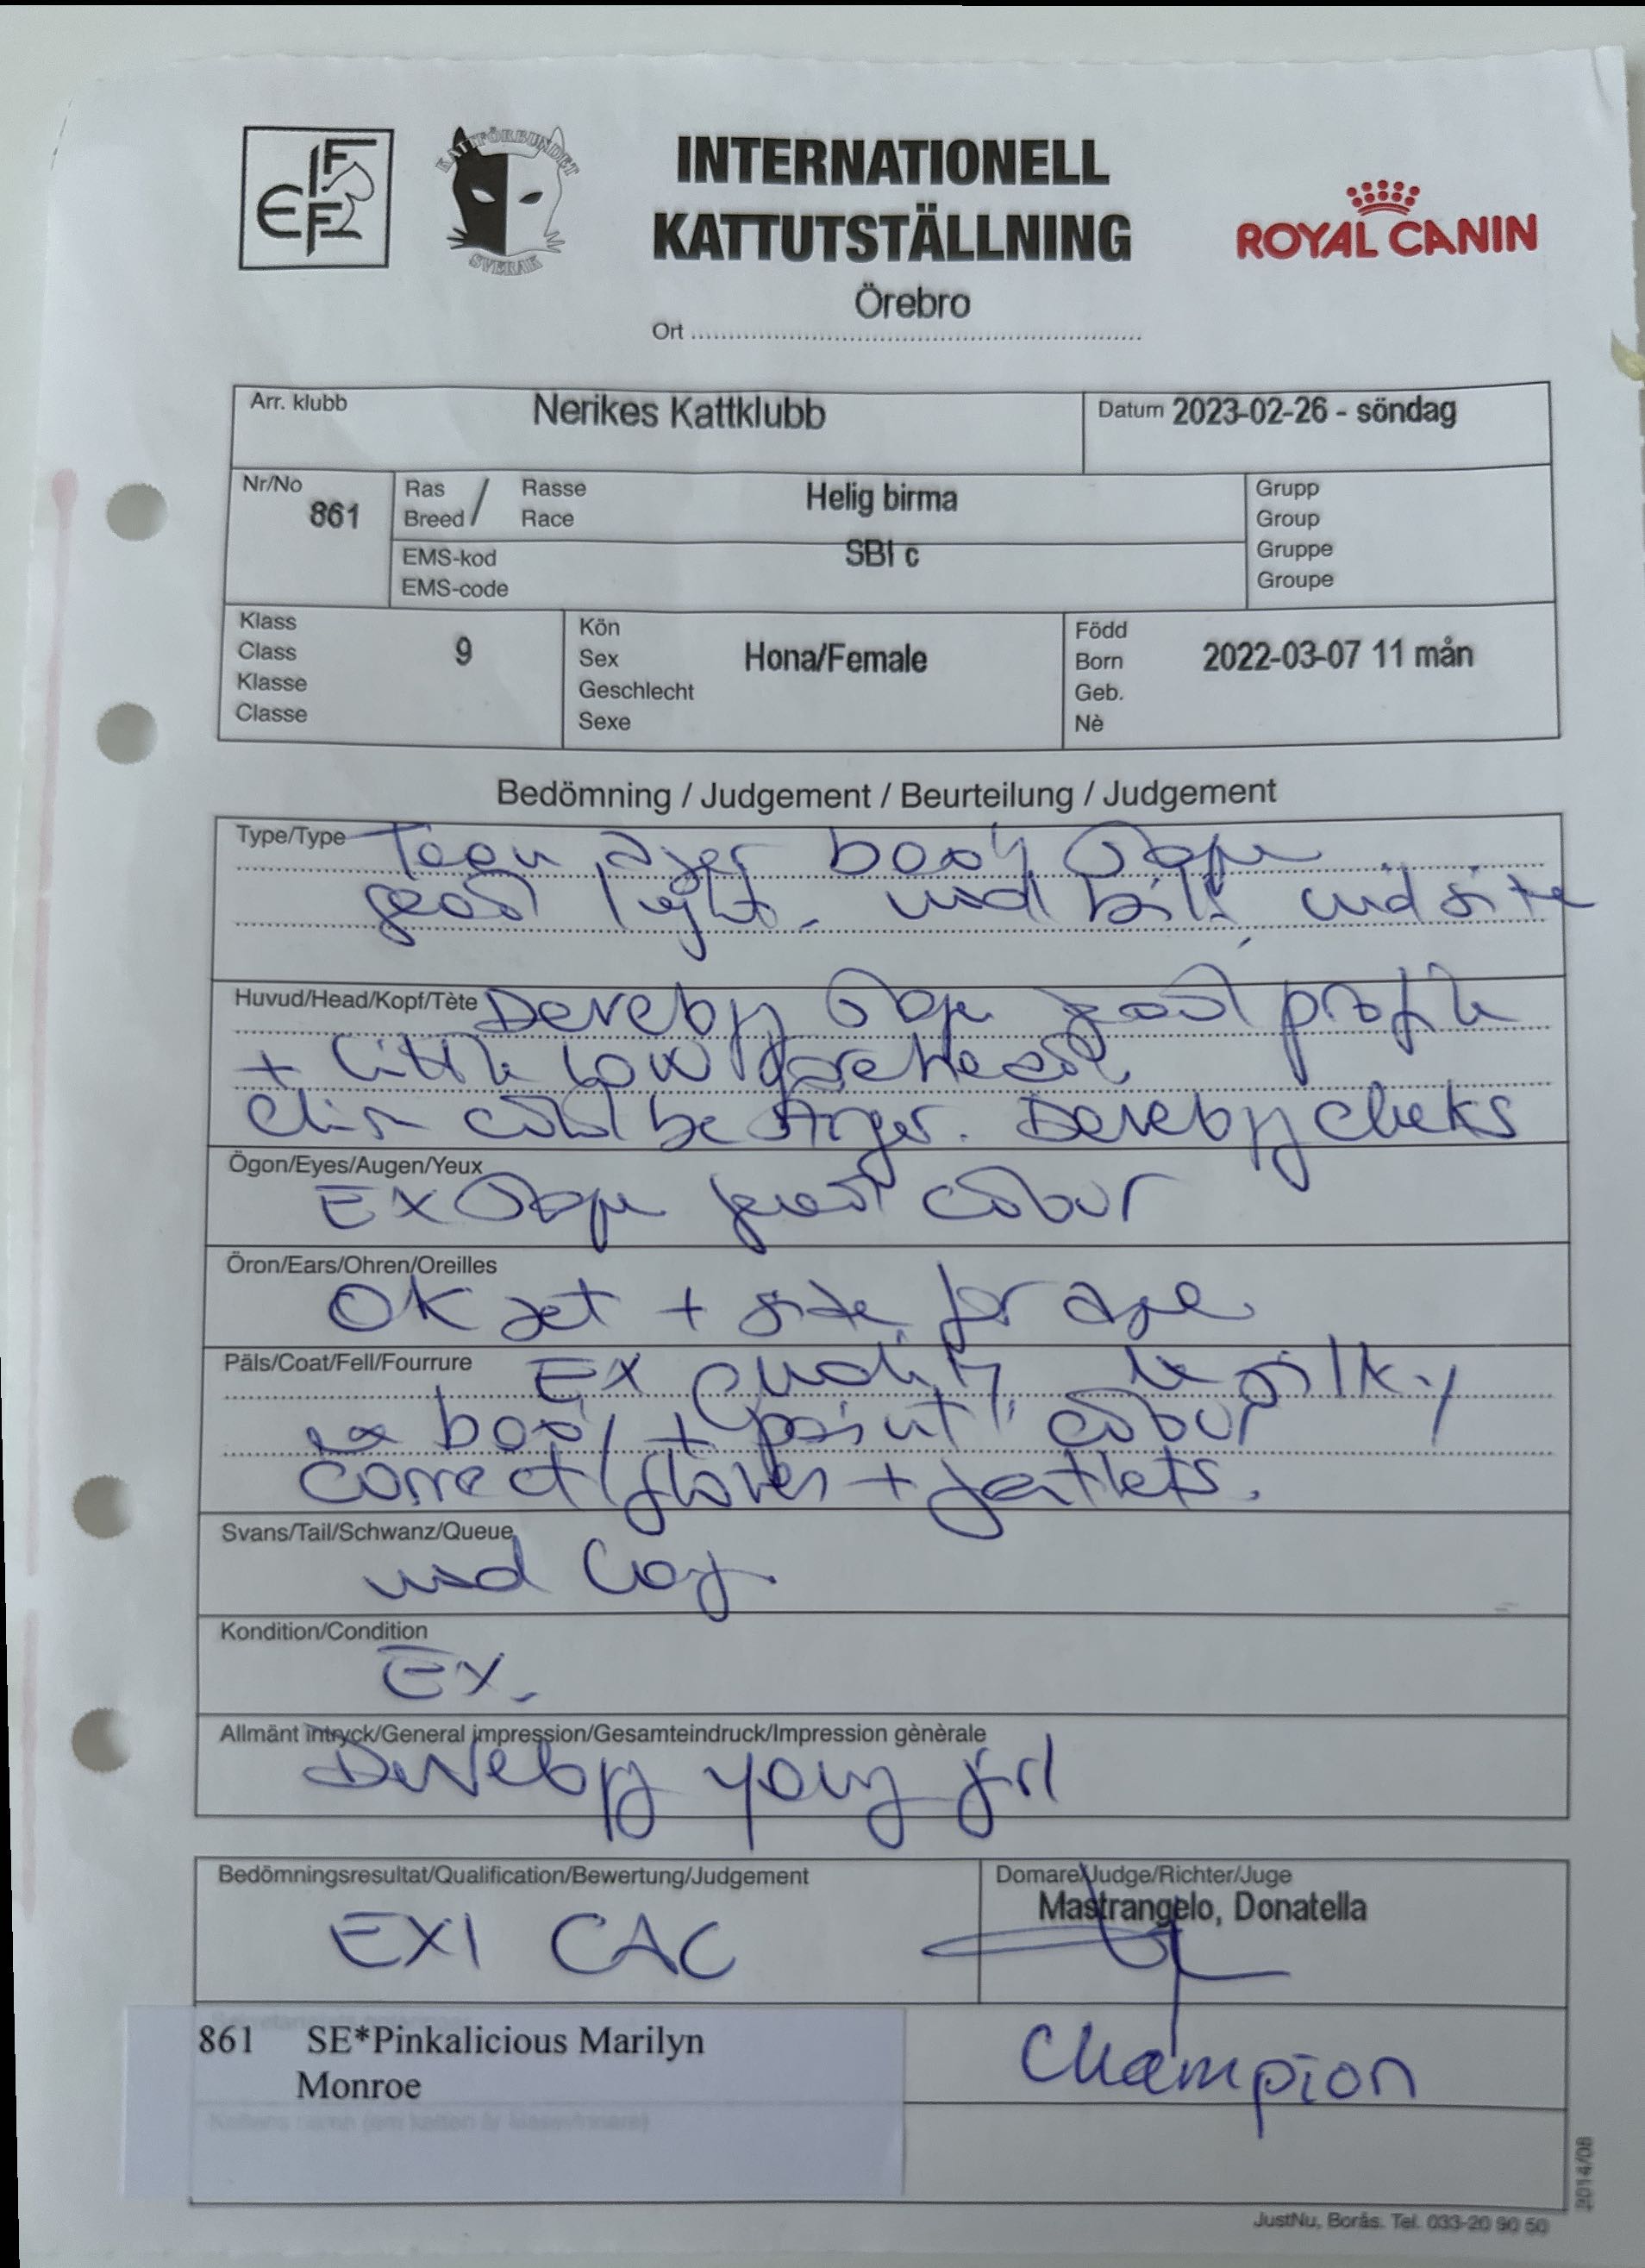 FIFE
KATTFÖRBUNDET
SVERAK
INTERNATIONELL
KATTUTSTÄLLNING
ROYAL CANIN
Örebro
Ort
Arr. klubb Nerikes Kattklubb Datum 2023-02-26 - söndag
Nr/No 861 Ras / Rasse Helig birma Grupp
Breed Race Group
EMS-kod SBI c Gruppe
EMS-code Groupe
Klass Kön Född
Class 9 Sex Hona/Female Born 2022-03-07 11 mån
Klasse Geschlecht Geb.
Classe Sexe Nè
Bedömning / Judgement / Beurteilung / Judgement
Type/Type Teen ager body
good mid size
Huvud/Head/Kopf/Tète good profile
+ little low forehead
chin could be . cheeks
Ögon/Eyes/Augen/Yeux
EX colour
Öron/Ears/Ohren/Oreilles
OK set + size for age
Päls/Coat/Fell/Fourrure EX quality silky
body + point colour
correct gloves +
Svans/Tail/Schwanz/Queue
Kondition/Condition
EX.
Allmänt intryck/General impression/Gesamteindruck/Impression gènèrale
young girl
Bedömningsresultat/Qualification/Bewertung/Judgement Domare/Judge/Richter/Juge
Mastrangelo, Donatella
EX1 CAC
861 SE*Pinkalicious Marilyn
Monroe
Champion
2014/08
JustNu, Borås. Tel. 033-20 90 50